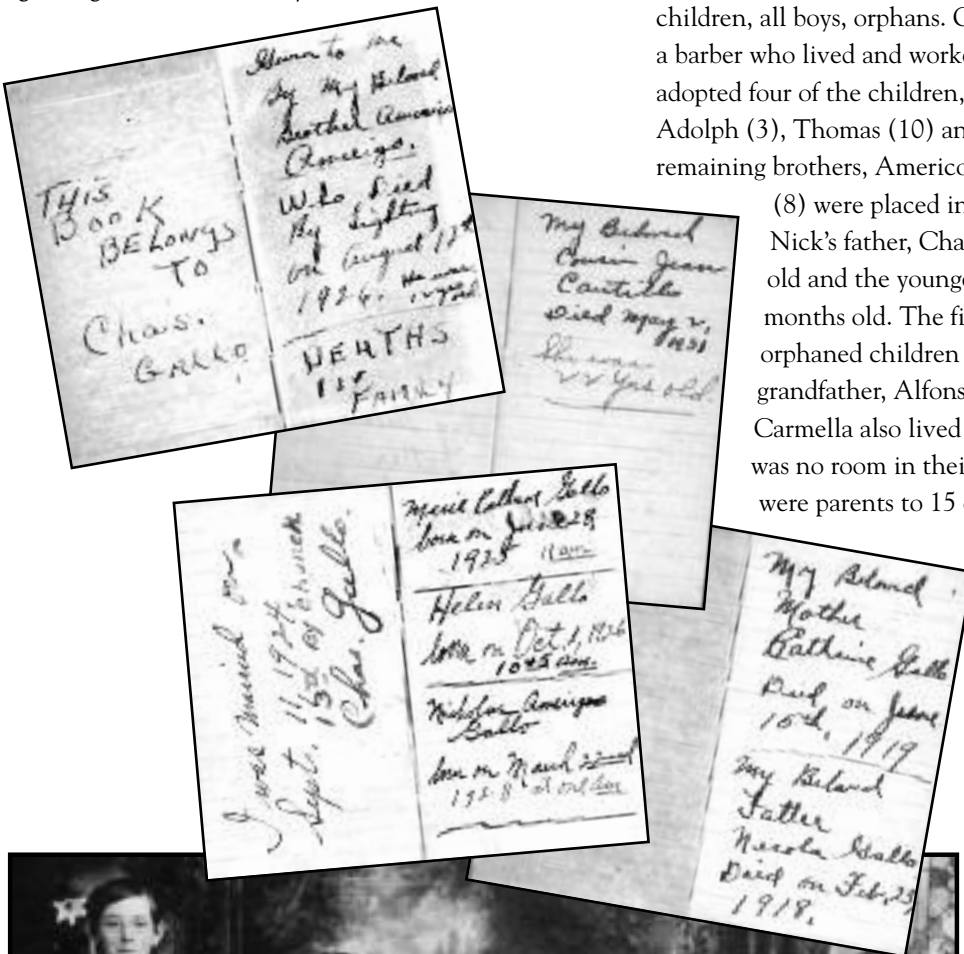 children, all boys, orphans.
a barber who lived and work
adopted four of the children,
Adolph (3), Thomas (10) an
remaining brothers, Americo
(8) were placed in
Nick's father, Cha
old and the young
months old. The fi
orphaned children
grandfather, Alfons
Carmella also lived
was no room in thei
were parents to 15
THIS
BOOK
BELONGS
TO
Chas.
GALLO
Given to me
By My Beloved
Brother
Amerigo.
Who Died
By Lighting
on August
1926. He was
DEATHS
FAMILY
My Beloved
Cousin Jean
Cautillo
Died May 2,
1931
She was
22 Yrs old
I was Married on
Sept. 11, 1924
Chas. Gallo.
Marie Gallo
born on June 28,
1925 11 am
Helen Gallo
born on Oct 1, 1926
10 45 am.
Nicholas Amerigo
Gallo
born on March 22nd
1928 at one am
My Beloved
Mother
Catherine Gallo
Died on June
15th, 1919
My Beloved
Father
Nicola Gallo
Died on Feb, 23,
1918.